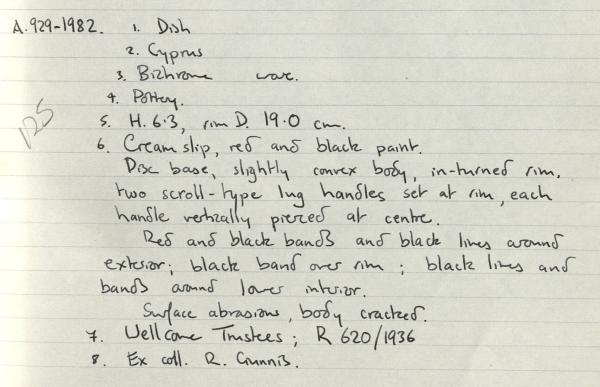 A.929-1982. 1. Dish
2. Cyprus
3. Bichrome ware.
4. Pottery.
5. H. 6.3, rim D. 19.0 cm.
125
6. Cream slip, red and black paint.
Disc base, slightly convex body, in-turned rim,
two scroll-type lug handles set at rim, each
handle vertically pierced at centre.
Red and black bands and black lines around
exterior; black band over rim; black lines and
bands around lower interior.
Surface abrasions, body cracked.
7. Wellcome Trustees; R 620/1936
8. Ex coll. R. Gunnis.